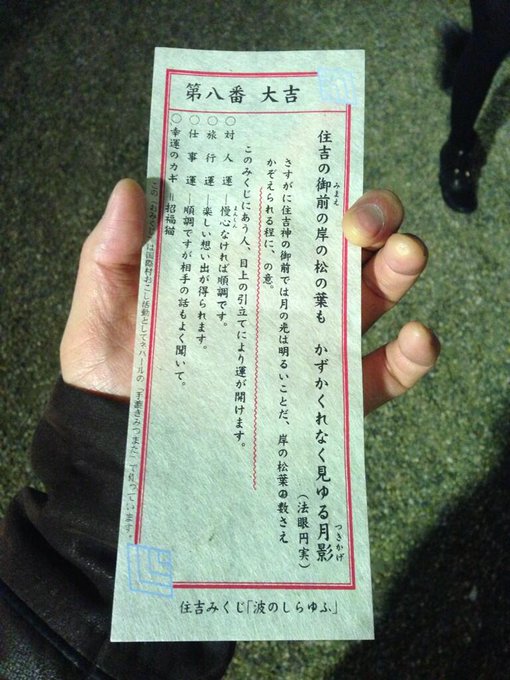 第八番 大吉
住吉の御前の岸の松の葉も かずかくれなく見ゆる月影
みまえ
つきかげ
(法眼円実)
さすがに住吉神の御前では月の光は明るいことだ、岸の松葉の数さえ
かぞえられる程に、の意。
このみくじにあう人、目上の引立てにより運が開けます。
○対人運 慢心なければ順調です。
まんしん
○旅行運―楽しい想い出が得られます。
○仕事運 順調ですが相手の話もよく聞いて。
○幸運のカギ=招福猫
この「おみくじ」は国際村おこし活動としてネパールの「手漉きみつまた」で作っています。
住吉みくじ「波のしらゆふ」